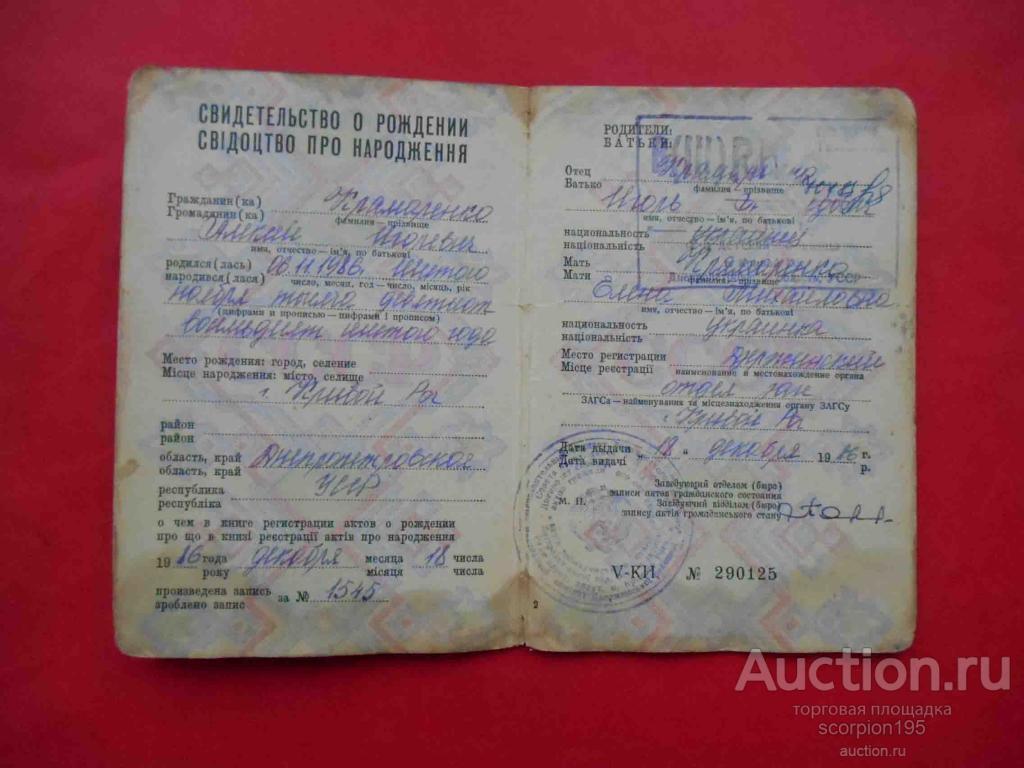 СВИДЕТЕЛЬСТВО О РОЖДЕНИИ
СВІДОЦТВО ПРО НАРОДЖЕННЯ
Гражданин(ка)
Громадянин(ка)
Крамаренко
фамилия – прізвище
Алексей Игоревич
имя, отчество – ім'я, по батькові
родился(лась) 06.11.1986 шестого
народився(лася)
число, месяц, год – число, місяць, рік
ноября тысяча девятьсот
(цифрами и прописью – цифрами і прописом)
восемьдесят шестого года
Место рождения: город, селение
Місце народження: місто, селище
г. Кривой Рог
район
район
область, край Днепропетровская
область, край
республика УССР
республіка
о чем в книге регистрации актов о рождении
про що в книзі реєстрації актів про народження
1986 года декабря месяца 18 числа
року місяця числа
произведена запись
зроблено запис
за № 1545
РОДИТЕЛИ:
БАТЬКИ:
Отец
Батько
фамилия – прізвище
Игорь
имя, отчество – ім'я, по батькові
национальность украинец
національність
Мать Крамаренко
Мати
фамилия – прізвище
Елена Михайловна
имя, отчество – ім'я, по батькові
национальность украинка
національність
Место регистрации
Місце реєстрації
наименование и местонахождение органа
отдел загс
ЗАГСа – найменування та місцезнаходження органу ЗАГСу
г. Кривой Рог
Дата выдачи „18“ декабря 1986 г.
Дата видачі р.
Заведующий отделом (бюро)
записи актов гражданского состояния
М. П.
Завідуючий відділом (бюро)
запису актів громадянського стану
V-КИ № 290125
2
Auction.ru
торговая площадка
scorpion195
auction.ru